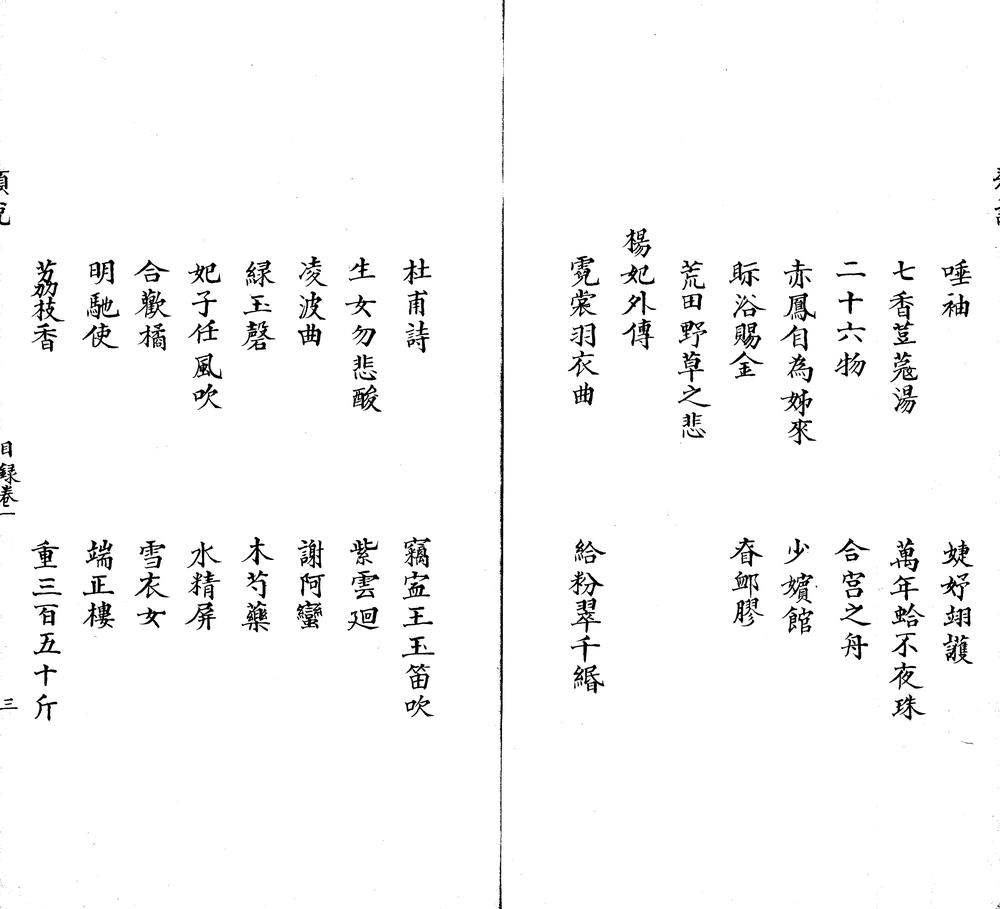 唾袖 婕妤翊護
七香荳蔻湯 萬年蛤不夜珠
二十六物 合宮之舟
赤鳳自為姊來 少嬪館
眎浴賜金 眘䘏膠
荒田野草之悲
楊妃外傳
霓裳羽衣曲 給粉翠千緡
杜甫詩 竊寍王玉笛吹
生女勿悲酸 紫雲廻
凌波曲 謝阿蠻
綠玉磬 木芍藥
妃子任風吹 水精屏
合歡橘 雪衣女
明馳使 端正樓
茘枝香 重三百五十斤
目錄卷一
三